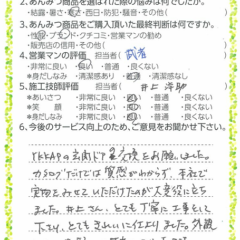 2.あんみつ商品を選ばれた際の悩みは何ですか。
・結露・暑さ・寒さ・西日・防犯・騒音・その他(
3.あんみつ商品をご購入頂いた最終判断は何ですか。
・性能・ブランド・クチコミ・営業マンの勧め
・販売店の信用・その他(
4.営業マンの評価 担当者( 武者
・非常に良い ・良い ・普通 ・良くない
※身だしなみ ・清潔感あり ・普通 ・清潔感なし
5.施工技師評価 担当者( 井上 浩助
※あいさつ ・非常に良い ・良い ・普通 ・良くない
※笑 顔 ・非常に良い ・良い ・普通 ・良くない
※身だしなみ ・非常に良い ・良い ・普通 ・良くない
6.今後のサービス向上のため、ご意見をお聞かせ下さい。
YKKAPの玄関ドア交換をお願いしました。
カタログだけでは実感がわからず、予めで
実物をみせていただけたのが大変役に立ち
ました。井上さん、とても丁寧に工事をして
下さり、とてもきれいに仕上りました。外観